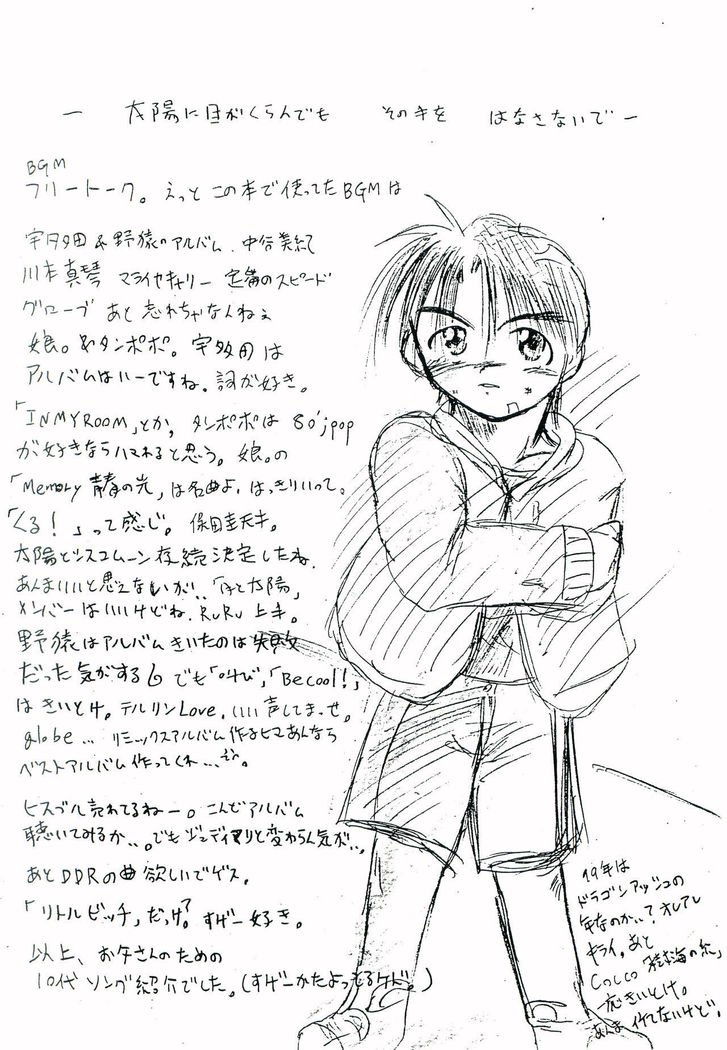 ー 太陽に目がくらんでも その手を はなさないでー
BGM
フリートーク。えっと この本で使ってたBGMは
宇多田&野猿のアルバム. 中谷美紀
川本真琴 マライヤキャリー 定番のスピード
グローブ あと 忘れちゃなんねぇ
娘。&タンポポ。宇多田は
アルバムはいーですね. 詞が好き。
「IN MY ROOM」とか, タンポポは 80'jpop
が好きならハマれると思う。娘。の
「Memory 青春の光」は名曲よ. はっきりいって。
「くる!」って感じ。保田圭天才。
太陽とシスコムーン存続決定したね.
あんまいいと思えないが..「月と太陽」
メンバーはいいけどね. RuRu上手。
野猿はアルバムきいたのは失敗
だった気がする でも「叫び」,「Be cool!」
は きいとけ。テルリンLove. いい声してまっせ。
globe... リミックスアルバム作るヒマあんなら
ベストアルバム作ってくれ...
ヒスブル売れてるねー。こんどアルバム
聴いてみるか..。でもジュディマリと変わらん気が..,
あとDDRの曲欲しいでゲス。
「リトルビッチ」だっけ?すげー好き。
以上、お年さんのための
10代ソング紹介でした。(すげーかたよってるケド。)
19年は
ドラゴンアッシュの
年なのか..?オレアレ
キライ。あと
Cocco「樹海の糸」
一応きいとけ。
あんま 似てないけど。